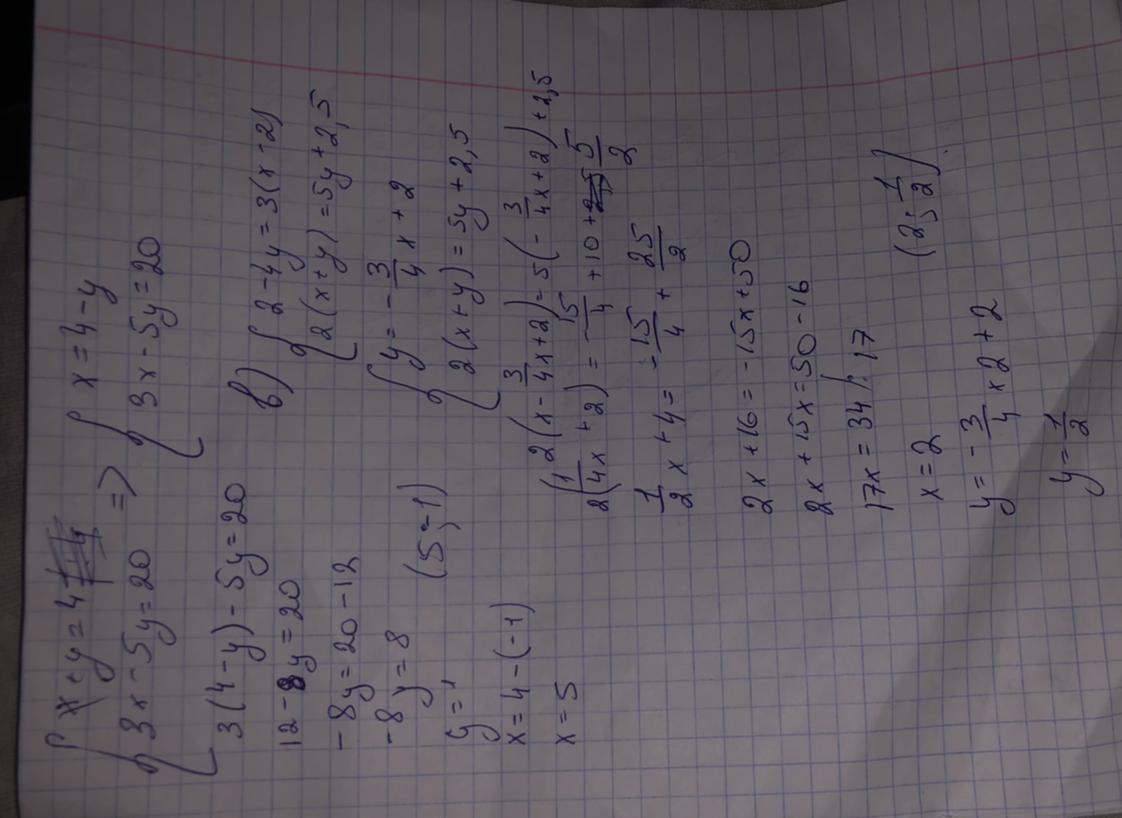 { x + y = 4
3x - 5y = 20 =>
{ x = 4 - y
3x - 5y = 20
3(4 - y) - 5y = 20
12 - 8y = 20
-8y = 20 - 12
-8y = 8
y = -1
x = 4 - (-1)
x = 5
(5; -1)
в) { 2 - 4y = 3(x - 2)
2(x + y) = 5y + 2,5
{ y = - 3/4 x + 2
2(x + y) = 5y + 2,5
2(x - 3/4x + 2) = 5(- 3/4x + 2) + 2,5
2(1/4x + 2) = - 15/4 + 10 + 5/2
1/2 x + 4 = - 15/4 + 25/2
2x + 16 = -15x + 50
2x + 15x = 50 - 16
17x = 34 /: 17
x = 2
y = - 3/4 x 2 + 2
y = 1/2
(2; 1/2)